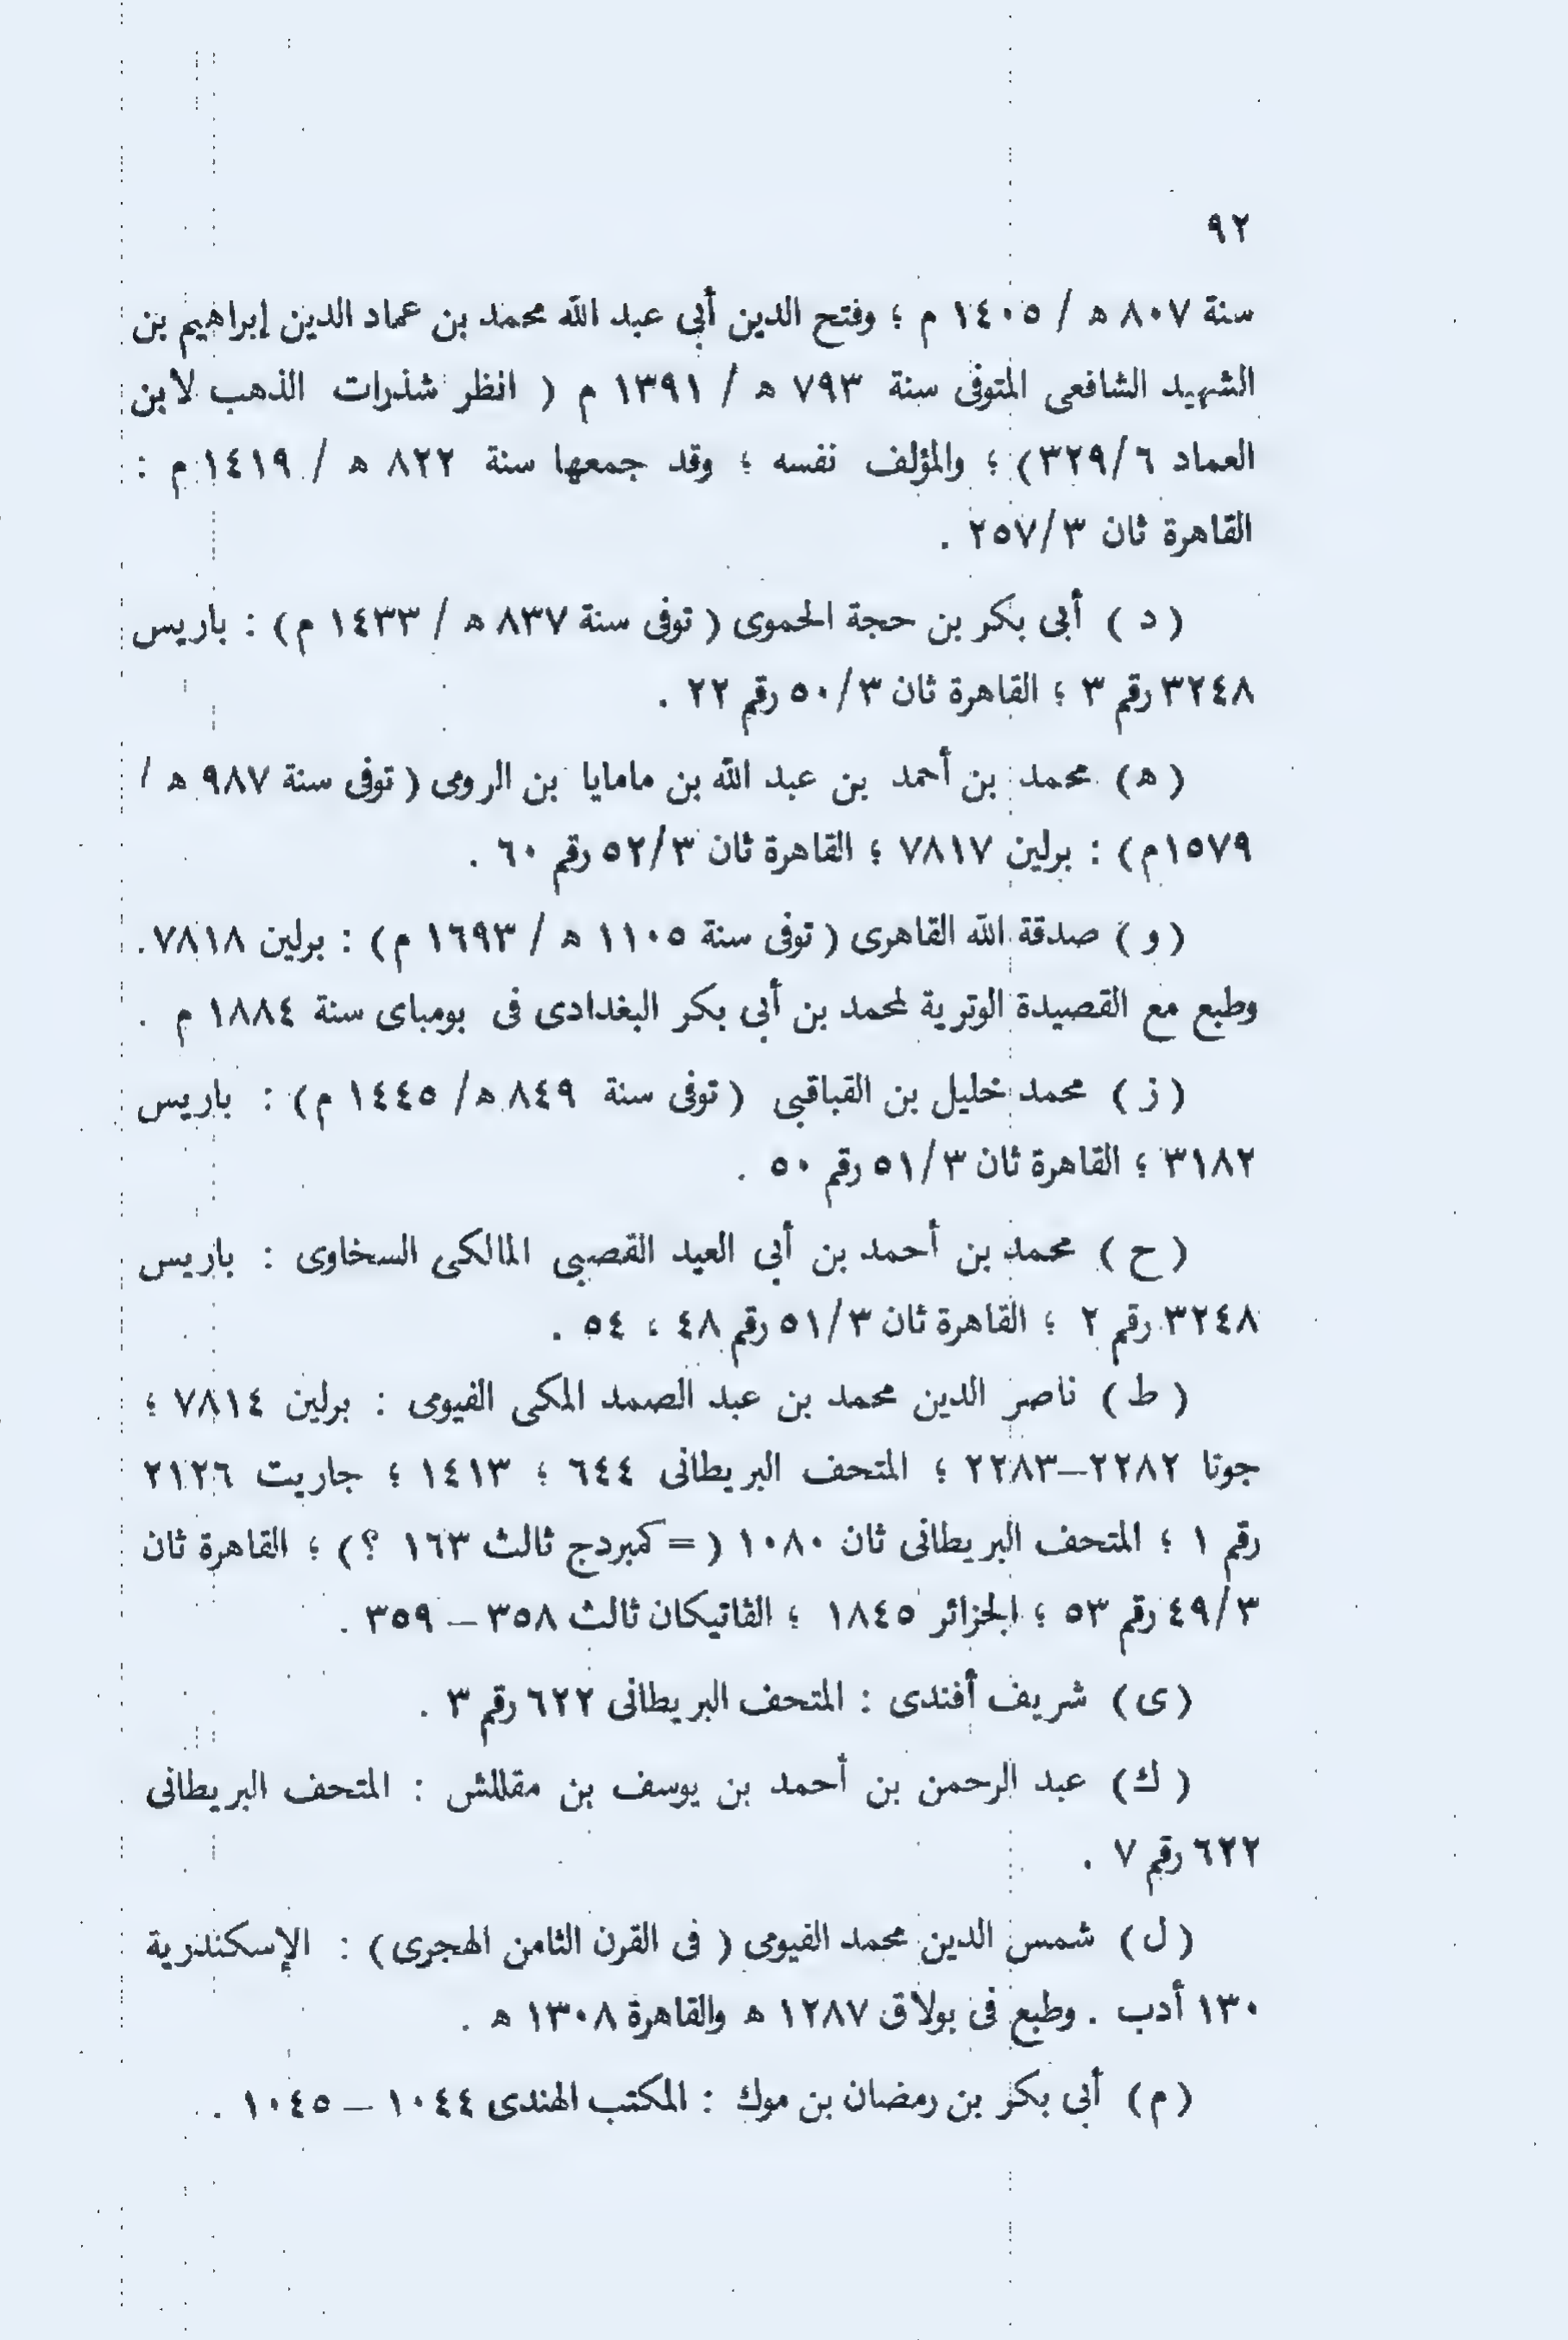 ٩٢
سنة ٨٠٧ ه / ١٤٠٥ م ؛ وفتح الدين أبى عبد الله محمد بن عماد الدين إبراهيم بن
الشهيد الشافعى المتوفى سنة ٧٩٣ ه / ١٣٩١ م ( انظر شذرات الذهب لابن
العماد ٣٢٩/٦) ؛ والمؤلف نفسه ؛ وقد جمعها سنة ٨٢٢ ه / ١٤١٩ م :
القاهرة ثان ٢٥٧/٣ .
( د ) أبى بكر بن حجة الحموى ( توفى سنة ٨٣٧ ه / ١٤٣٣ م) : باريس
٣٢٤٨ رقم ٣ ؛ القاهرة ثان ٥٠/٣ رقم ٢٢ .
( ه ) محمد بن أحمد بن عبد الله بن مامايا بن الرومى ( توفى سنة ٩٨٧ ه /
١٥٧٩م) : برلين ٧٨١٧ ؛ القاهرة ثان ٥٢/٣ رقم ٦٠ .
( و ) صدقة الله القاهرى ( توفى سنة ١١٠٥ ه / ١٦٩٣ م) : برلين ٧٨١٨.
وطبع مع القصيدة الوترية لمحمد بن أبى بكر البغدادى فى بومباى سنة ١٨٨٤ م .
( ز ) محمد خليل بن القباقبى ( توفى سنة ٨٤٩ ه/ ١٤٤٥ م) : باريس
٣١٨٢ ؛ القاهرة ثان ٥١/٣ رقم ٥٠ .
( ح ) محمد بن أحمد بن أبى العيد القصبى المالكى السخاوى : باريس
٣٢٤٨ رقم ٢ ؛ القاهرة ثان ٥١/٣ رقم ٤٨ ، ٥٤ .
( ط ) ناصر الدين محمد بن عبد الصمد المكى الفيومى : برلين ٧٨١٤ ؛
جوتا ٢٢٨٢–٢٢٨٣ ؛ المتحف البريطانى ٦٤٤ ؛ ١٤١٣ ؛ جاريت ٢١٢٦
رقم ١ ؛ المتحف البريطانى ثان ١٠٨٠ ( = كمبردج ثالث ١٦٣ ؟) ؛ القاهرة ثان
٤٩/٣ رقم ٥٣ ؛ الجزائر ١٨٤٥ ؛ الڤاتيكان ثالث ٣٥٨ – ٣٥٩ .
(ى ) شريف أفندى : المتحف البريطانى ٦٢٢ رقم ٣ .
( ك ) عبد الرحمن بن أحمد بن يوسف بن مقللش : المتحف البريطانى
٦٢٢ رقم ٧ .
( ل ) شمس الدين محمد الفيومى ( فى القرن الثامن الهجرى) : الإسكندرية
١٣٠ أدب . وطبع فى بولاق ١٢٨٧ ه والقاهرة ١٣٠٨ ه .
( م ) أبى بكر بن رمضان بن موك : المكتب الهندى ١٠٤٤ – ١٠٤٥ .